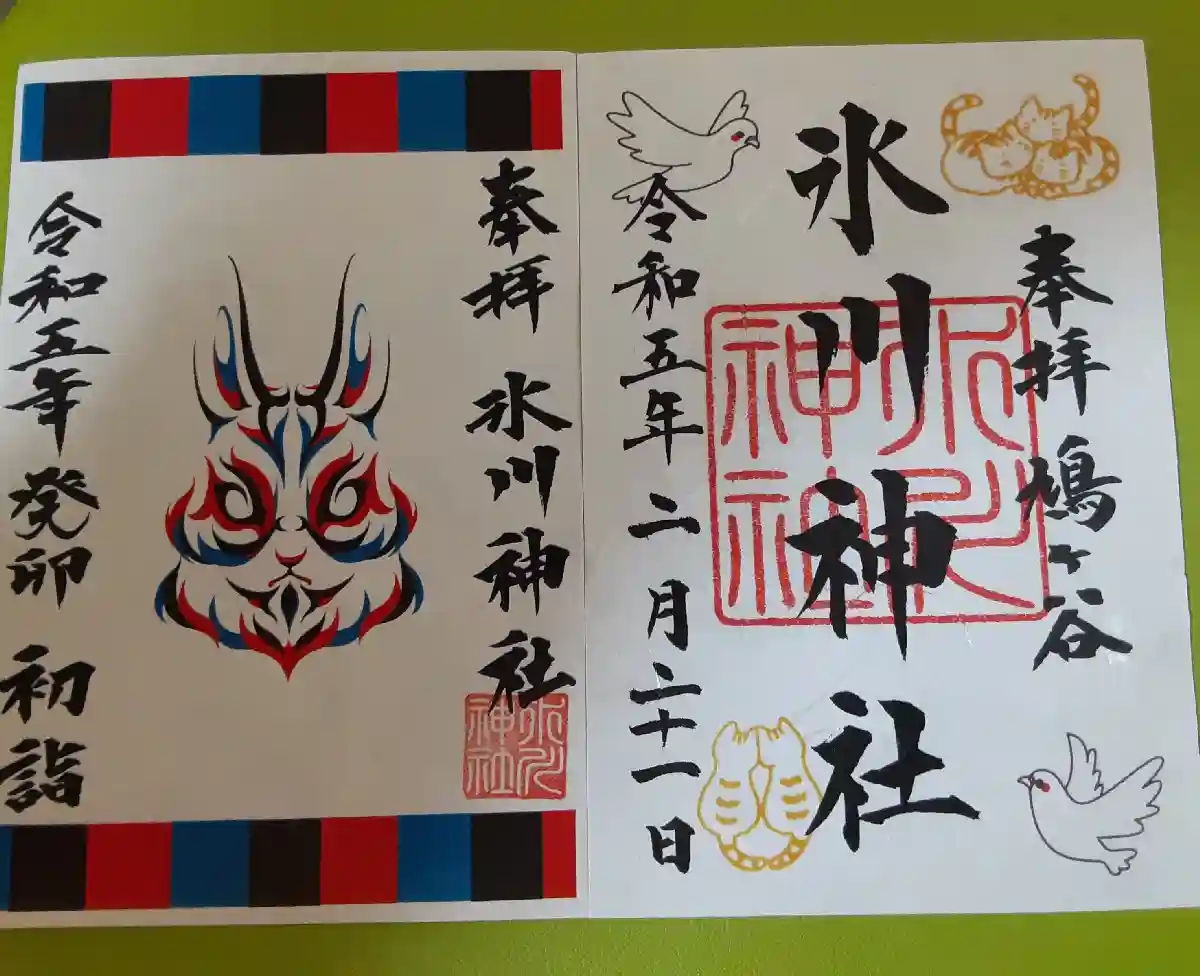 奉拝 鳩ヶ谷
氷川神社
氷川神社
令和五年二月二十一日
奉拝 氷川神社
氷川神社
令和五年 癸卯 初詣